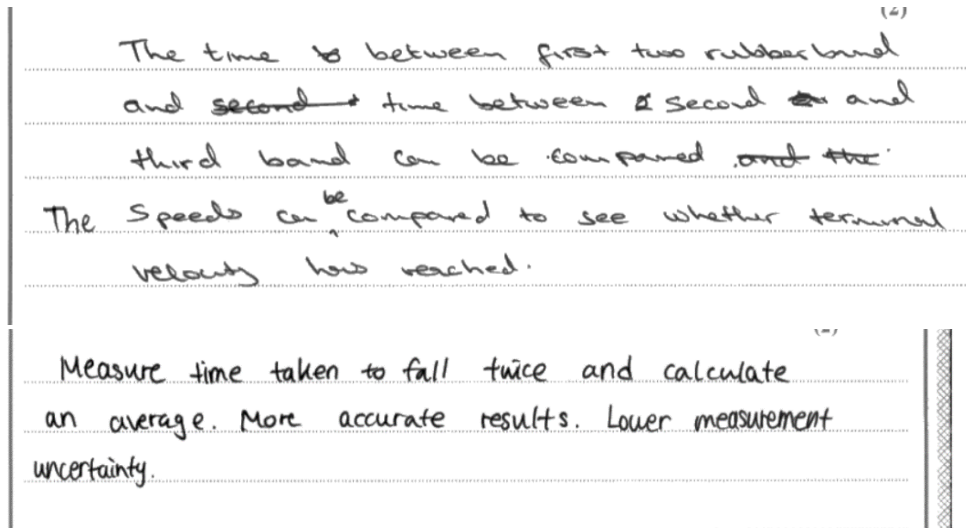 (2)
The time between first two rubber band
and second time between second and
third band can be compared and the
The speeds can be compared to see whether terminal
velocity has reached.
Measure time taken to fall twice and calculate
an average. More accurate results. Lower measurement
uncertainty.